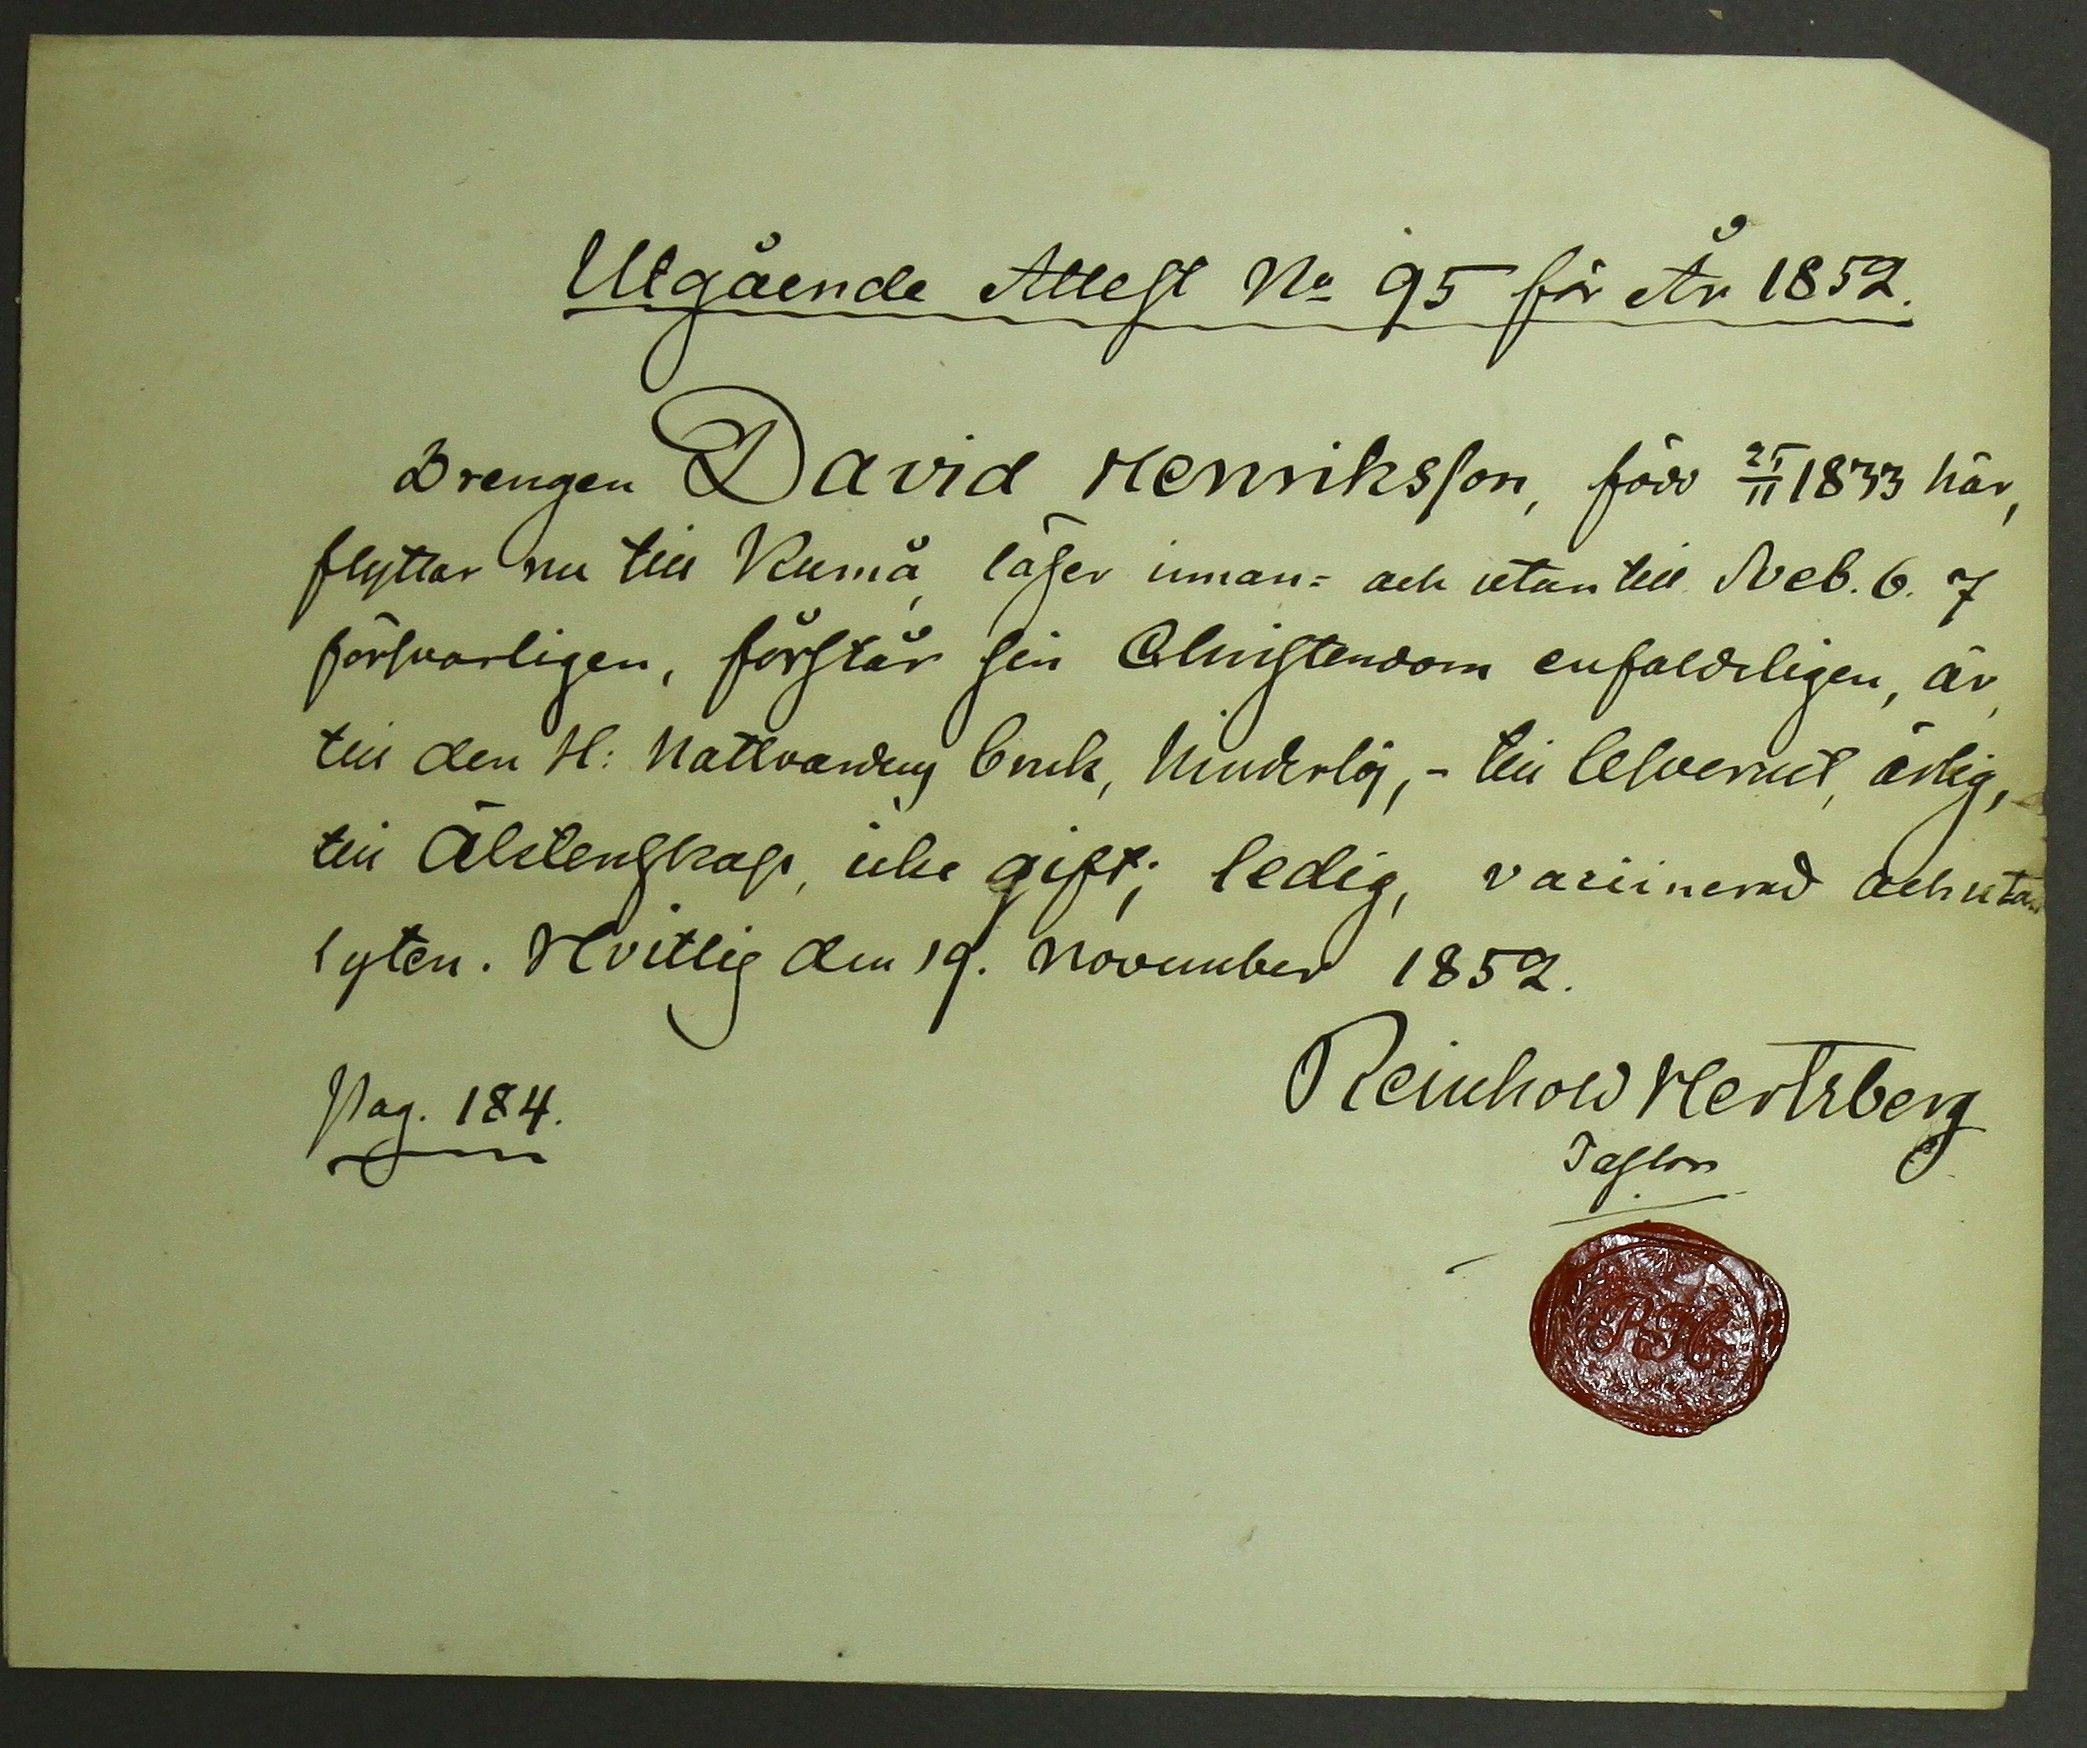 Utgående Attest No 95 för År 1852.
Drengen David Henriksson, född 25/11 1833 här,
flyttar nu till Kumå, läser innan= och utan till Sveb. 6. 7
försvarligen, förstår sin Christendom enfaldeligen, är
till den H: Nattvardens bruk, hinderlös, - till lefvernet, ärlig,
till Äktenskap, icke gift; ledig, vaccinerad och utan
lyten. Hvittis den 19. November 1852.
Pag. 184.
Reinhold Hertzberg
Pastor
RH